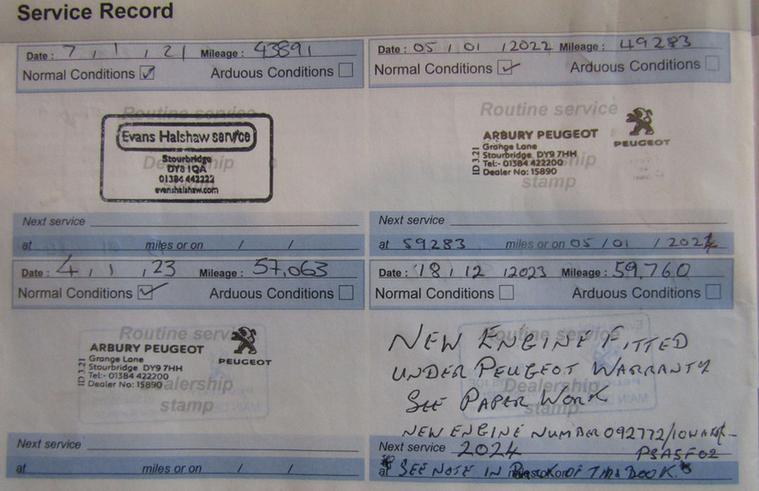 Service Record
Date : 7 / 1 / 21 Mileage : 43891
Normal Conditions ☑ Arduous Conditions ☐
Routine service
Evans Halshaw service
Stourbridge
DY8 1QA
01384 442222
evanshalshaw.com
Dealership
stamp
Next service
at miles or on / /
Date : 05 / 01 / 2022 Mileage : 49283
Normal Conditions ☑ Arduous Conditions ☐
Routine service
ID 3.21
ARBURY PEUGEOT
Grange Lane
Stourbridge DY9 7HH
Tel:- 01384 422200
Dealer No: 15890
PEUGEOT
Dealership
stamp
Next service
at 59283 miles or on 05 / 01 / 2024
Date : 4 / 1 / 23 Mileage : 57,063
Normal Conditions ☑ Arduous Conditions ☐
Routine service
ID 3.21
ARBURY PEUGEOT
Grange Lane
Stourbridge DY9 7HH
Tel:- 01384 422200
Dealer No: 15890
PEUGEOT
Dealership
stamp
Next service
at miles or on / /
Date : 18 / 12 / 2023 Mileage : 59,760
Normal Conditions ☐ Arduous Conditions ☐
Routine service
NEW ENGINE FITTED
UNDER PEUGEOT WARRANTY
Dealership
SEE PAPER WORK
stamp
NEW ENGINE NUMBER 092772/
PSASF02
Next service 2024
at * SEE NOTE IN BACK OF THIS BOOK. *